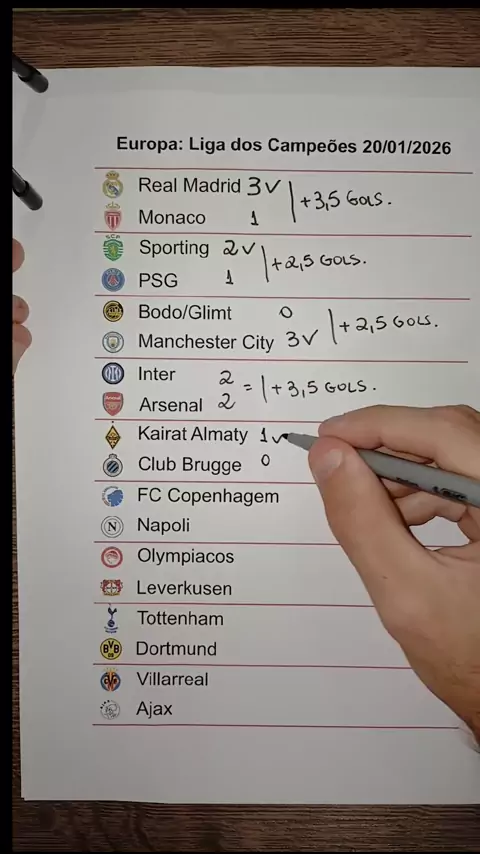 Europa: Liga dos Campeões 20/01/2026
Real Madrid 3 V
Monaco 1
+3,5 GOLS.
Sporting 2 V
PSG 1
+2,5 GOLS.
Bodo/Glimt 0
Manchester City 3 V
+2,5 GOLS.
Inter 2
Arsenal 2
= +3,5 GOLS.
Kairat Almaty 1 V
Club Brugge 0
FC Copenhagem
Napoli
Olympiacos
Leverkusen
Tottenham
Dortmund
Villarreal
Ajax